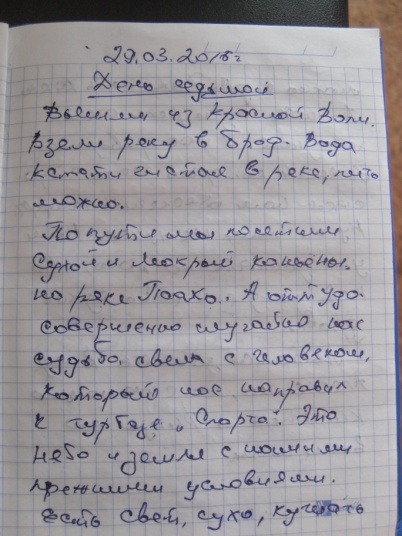 29.03.2016г
День седьмой
Вышли из Красной Воли.
Взели реку в брод. Вода
кстати чистая в реке, пить
можно.
По пути мы посетили
Сухой и Мокрый каньены.
на реке Псахо. А оттуда
совершенно случайно нас
судьба свела с человеком,
который нас направил
к турбазе „Спарта". Это
небо и земля с нашими
прежними условиями.
Есть свет, сухо, кушать